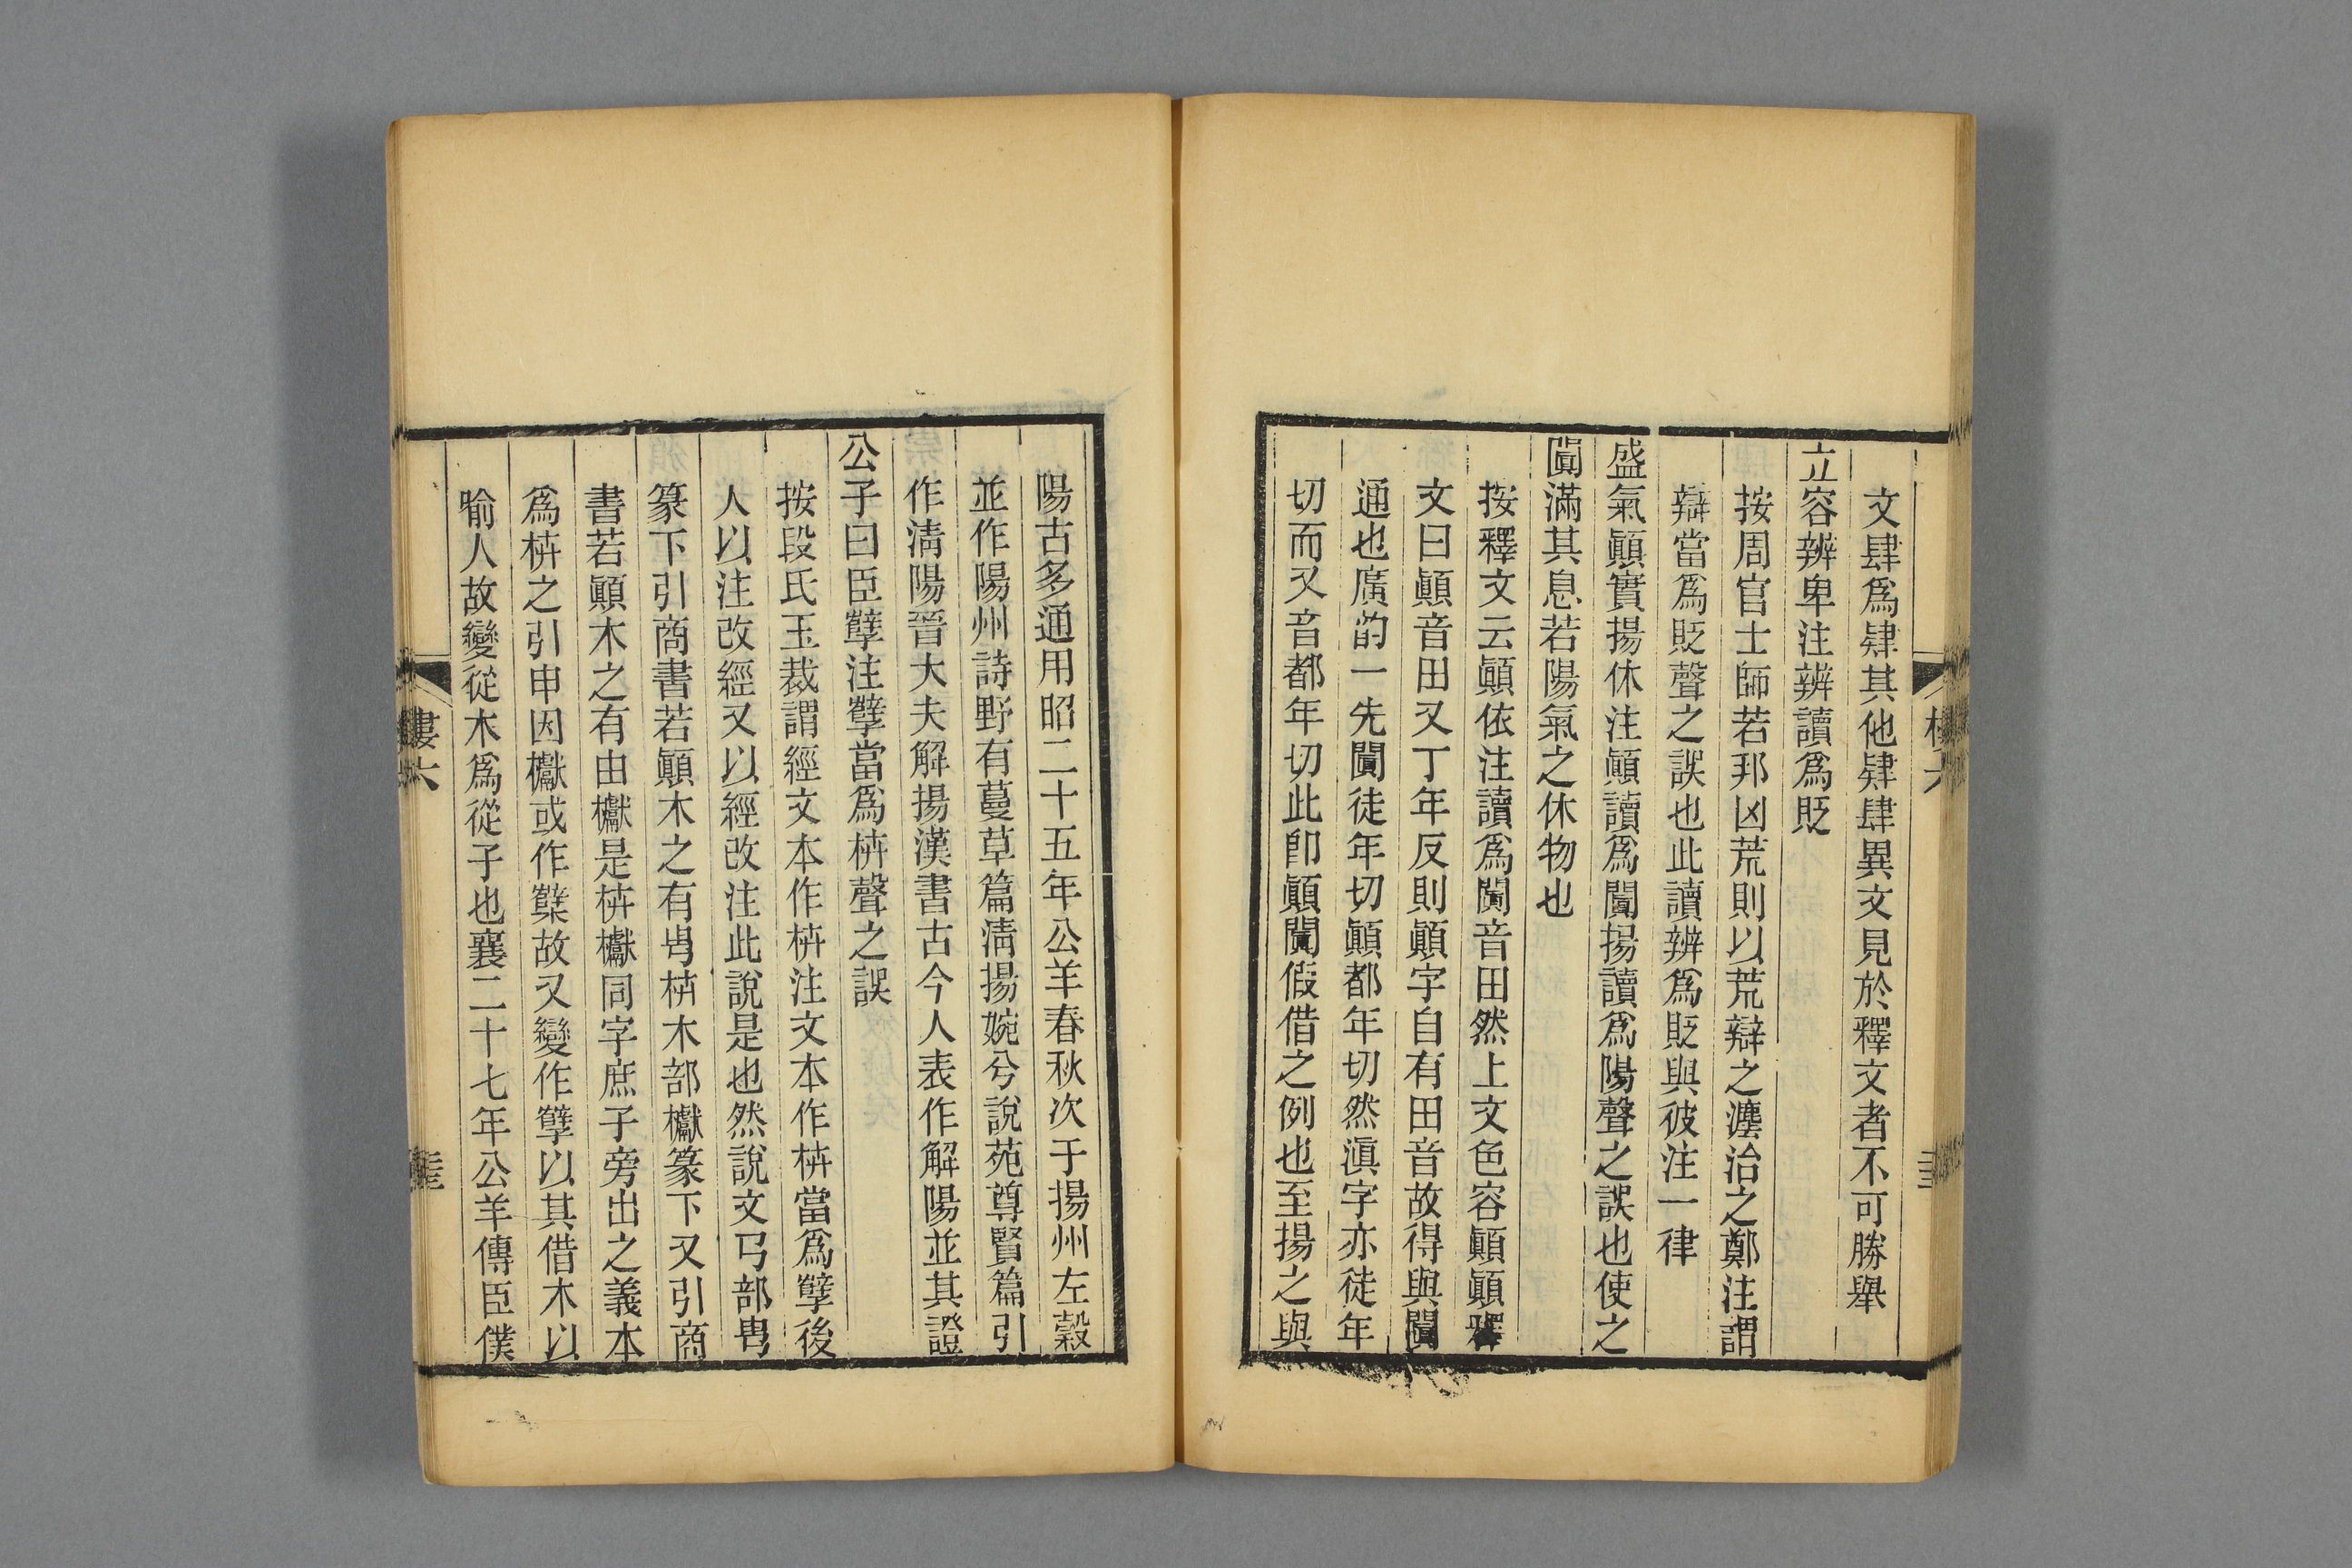 文肆爲肄其他肄肆異文見於釋文者不可勝舉
立容辨卑注辨讀爲貶
按周官士師若邦凶荒則以荒辯之灋治之鄭注謂
辯當爲貶聲之誤也此讀辨爲貶與彼注一律
盛氣顚實揚休注顚讀爲闐揚讀爲陽聲之誤也使之
闐滿其息若陽氣之休物也
按釋文云顚依注讀爲闐音田然上文色容顚顚釋
文曰顚音田又丁年反則顚字自有田音故得與闐
通也廣韵一先闐徒年切顚都年切然滇字亦徒年
切而又音都年切此卽顚闐假借之例也至揚之與
陽古多通用昭二十五年公羊春秋次于揚州左穀
並作陽州詩野有蔓草篇淸揚婉兮說苑尊賢篇引
作淸陽晉大夫解揚漢書古今人表作解陽並其證
公子曰臣孽注孽當爲枿聲之誤
按段氏玉裁謂經文本作枿注文本作枿當爲孽後
人以注改經又以經改注此說是也然說文𢎘部㽕
篆下引商書若顚木之有㽕枿木部櫱篆下又引商
書若顚木之有由櫱是枿櫱同字庶子旁出之義本
爲枿之引申因櫱或作蘖故又變作孽以其借木以
喻人故變從木爲從子也襄二十七年公羊傳臣僕